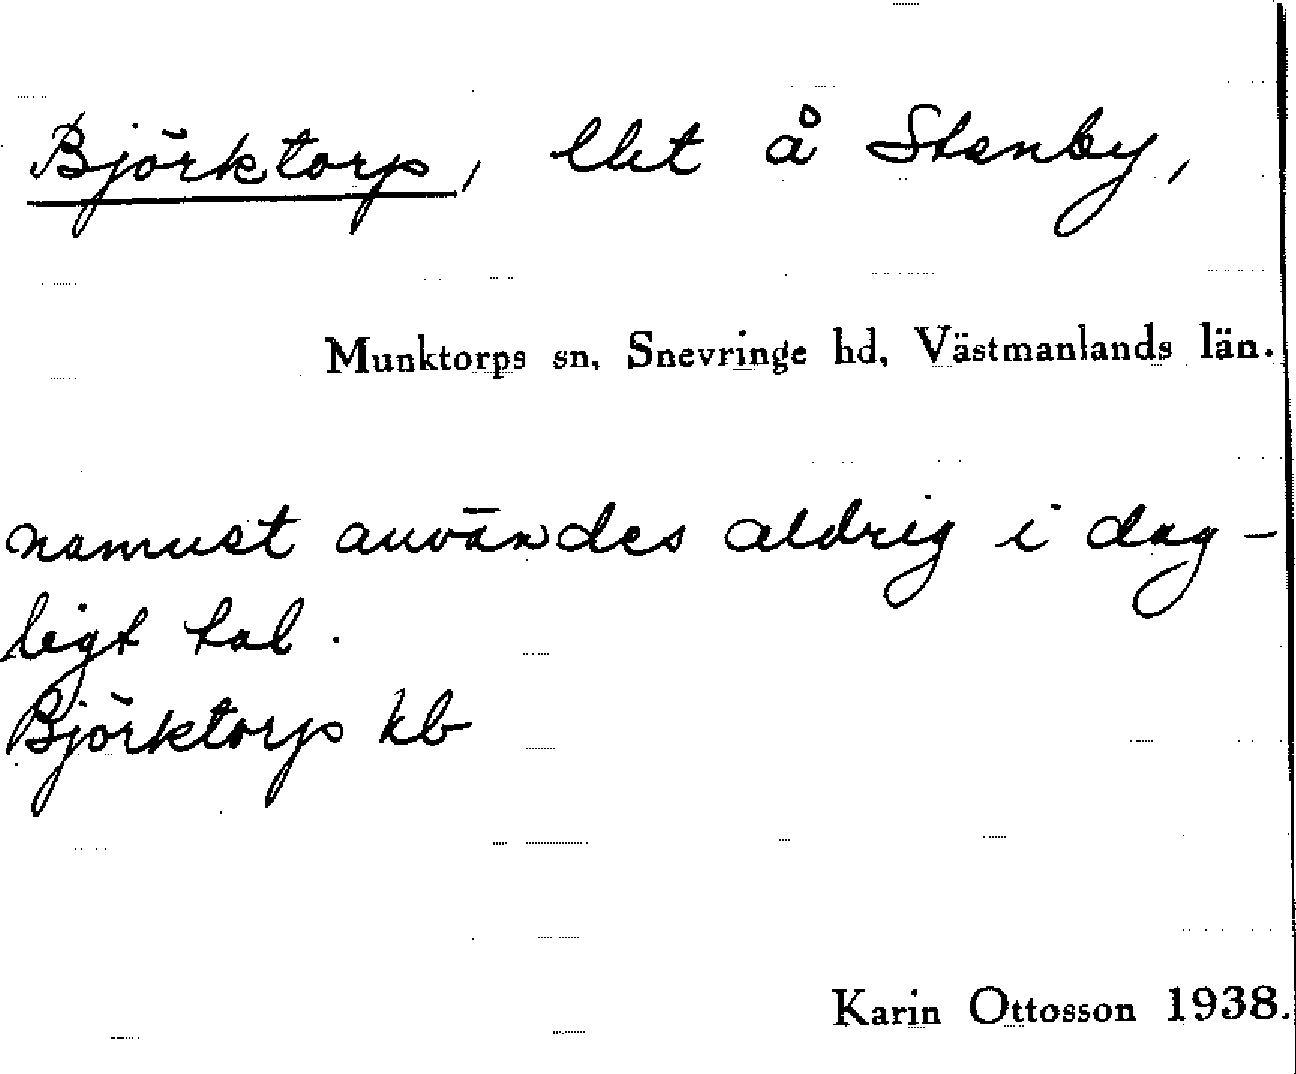 Björktorp, lht å Stenby,
Munktorps sn, Snevringe hd, Västmanlands län.
namnet användes aldrig i dag-
ligt tal.
Björktorp kb
Karin Ottosson 1938.